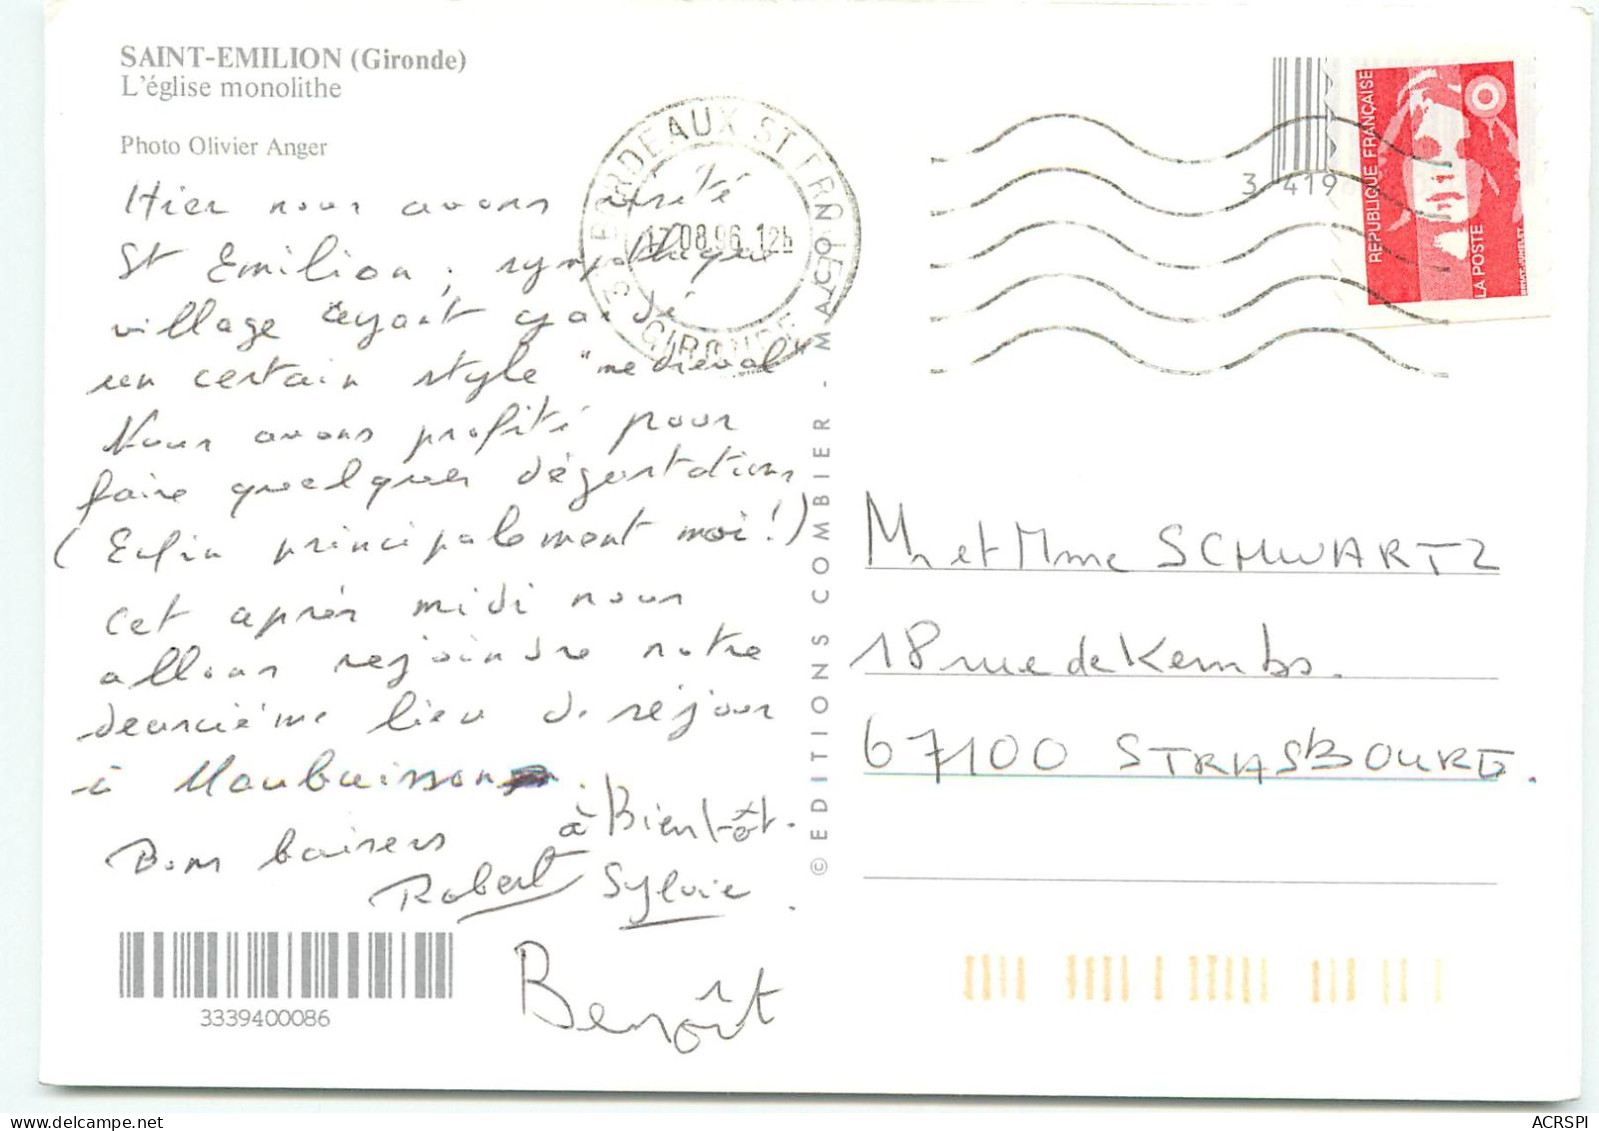 SAINT-EMILION (Gironde)
L'église monolithe
Photo Olivier Anger
Hier nous avons visité
St Emilion, sympathique
village ayant gardé
un certain style "medieval"
Nous avons profité pour
faire quelques dégustations
(Enfin principalement moi!)
cet après midi nous
allons rejoindre notre
deuxième lieu de séjour
à Maubuisson.
Bons baisers
à Bientôt.
Robert Sylvie
Benoît
3339400086
© EDITIONS COMBIER - MACON
33 BORDEAUX ST
GIRONDE
17.08.96 12h
3 419
REPUBLIQUE FRANÇAISE
LA POSTE
Mr et Mme SCHWARTZ
18 rue de Kembs.
67100 STRASBOURG.
ACRSPI